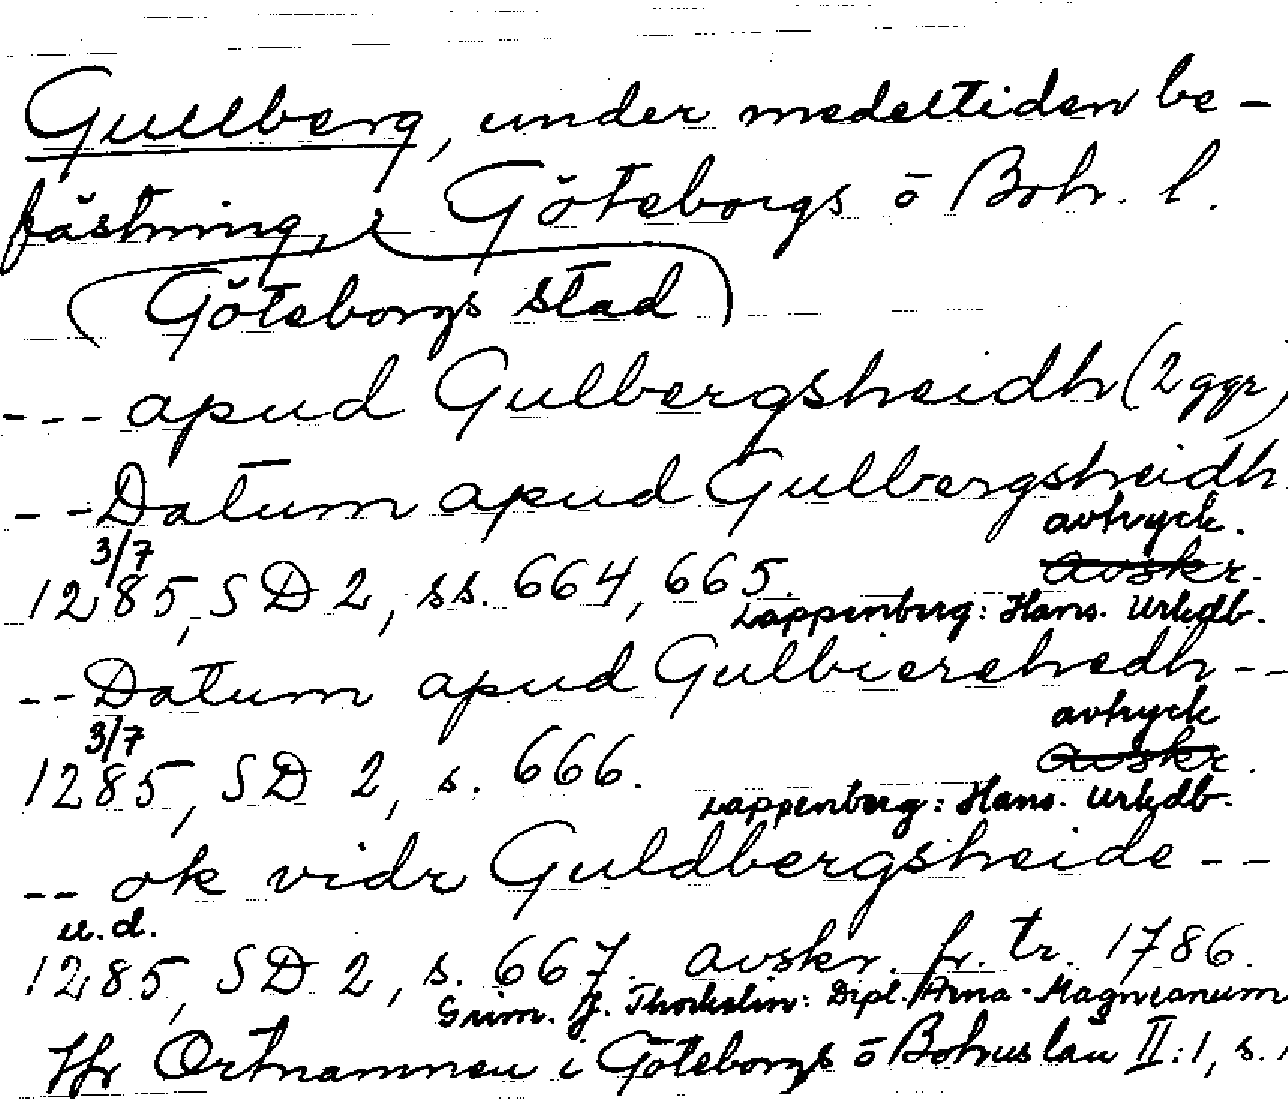 Gullberg, under medeltiden be-
fästning, i Göteborgs o Boh. l.
(Göteborgs stad)
--- apud Gulbergsheidh (2 ggr)
-- Datum apud Gulbergsheidh
avtryck.
3/7
1285, SD 2, ss. 664, 665. avskr.
Lappenberg: Hans. Urkdb.
-- Datum apud Gulbierehedh --
avtryck
3/7
1285, SD 2, s. 666. avskr.
Lappenberg: Hans. Urkdb.
-- ok vidr Guldbergsheide --
u.d.
1285, SD 2, s. 667. avskr. fr. tr. 1786.
Grim. J. Thorkelin: Dipl. Arna-Magnæanum
Jfr Ortnamnen i Göteborgs o Bohuslän II:1, s.